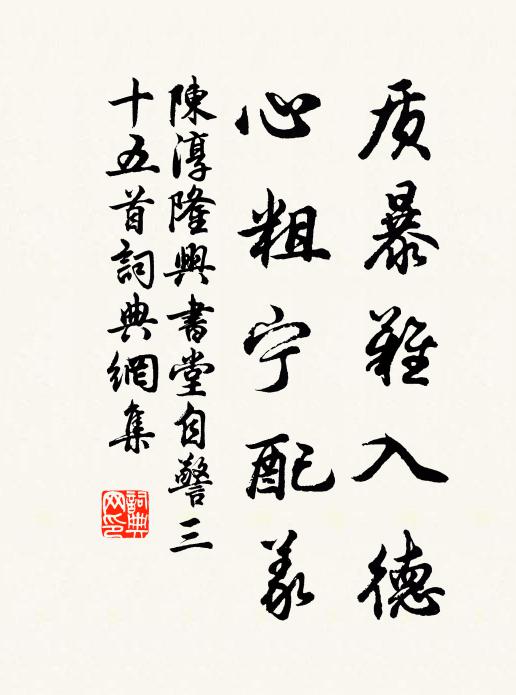 质暴难入德
心粗宁配义
陳淳隆興書堂自警三
十五首詞典網集
詞典
网印